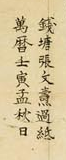 錢塘張文熹過綠
萬曆壬寅孟秋日